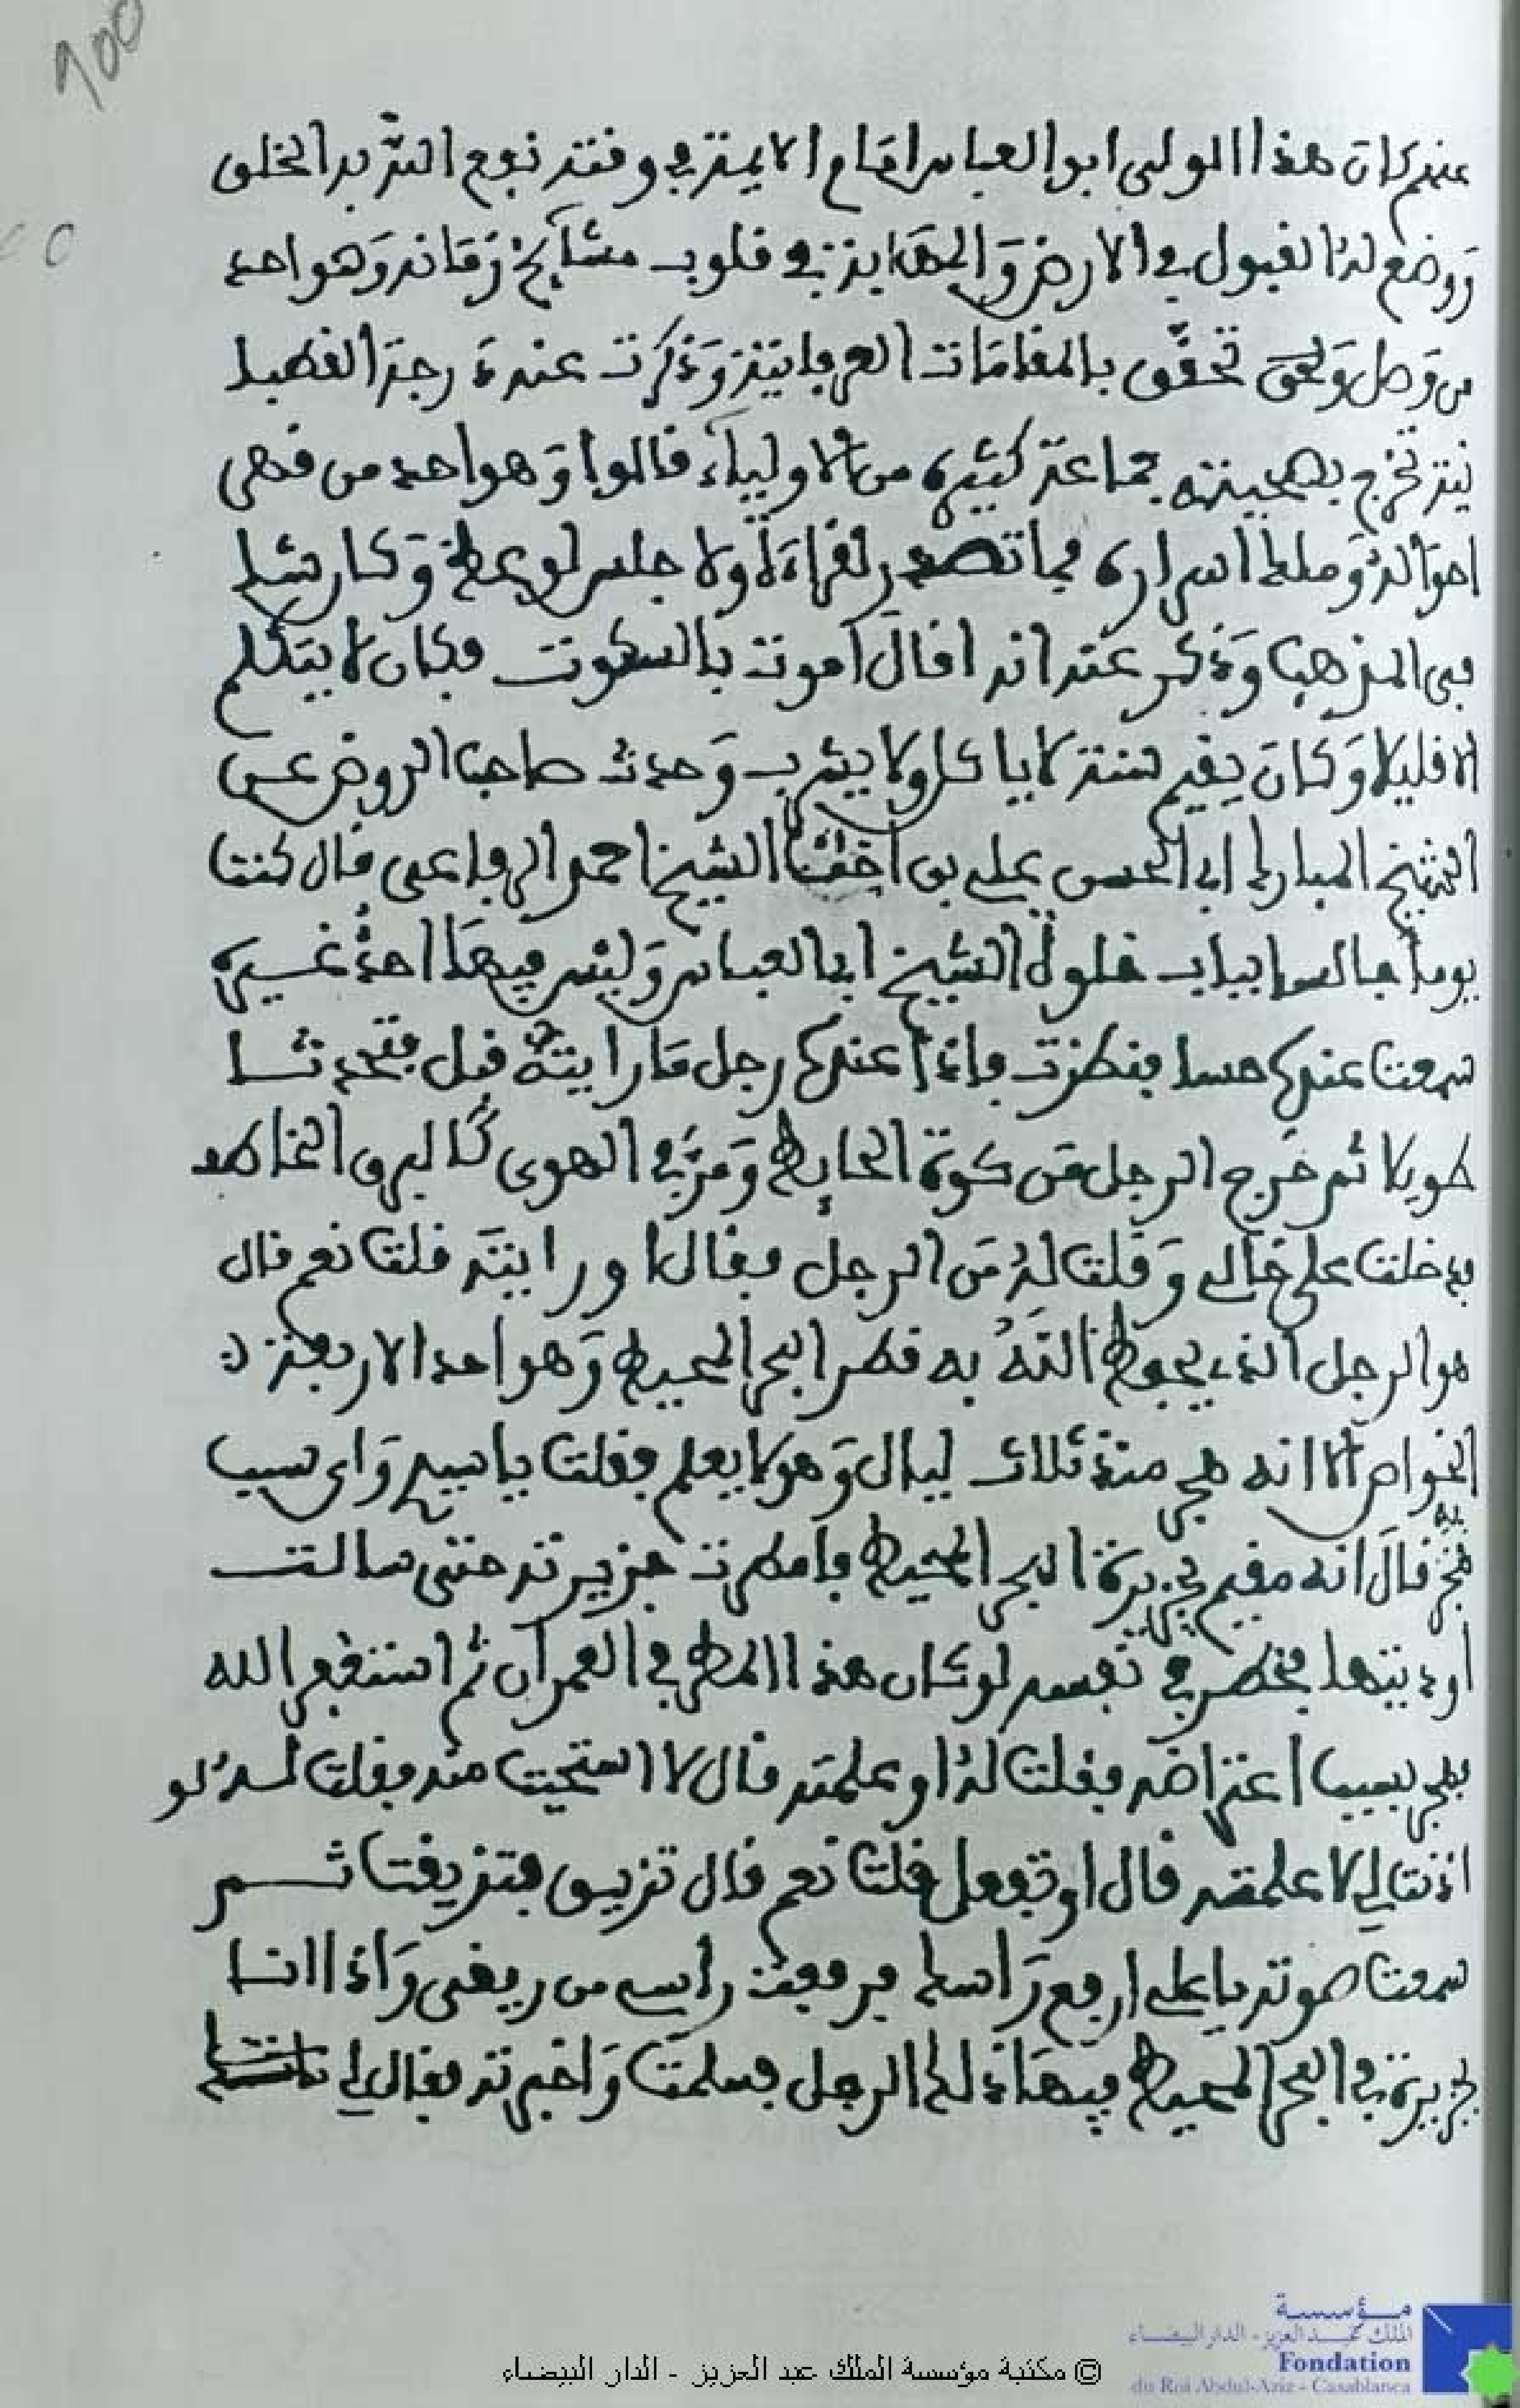 100
عنه كان هذا المولى ابو العباس امام الايمة في وقته نبع الله به الخلق
ووضع له القبول في الارض والمهابة في قلوب مشايخ زمانه وهو احد
من وصل ولحق تحقق بالمقامات العرفانية وذكرت عنده درجة القطبا
نية تخرج بصحبته جماعة كثيرة من الاولياء قالوا وهو احد من فهى
احواله وملك اسراره فما تصدر لقراءة ولا جلس لوعظ وكان شا
فعي المذهب وذكر عنه انه قال أموت بالسكوت فكان لا يتكلم
الا قليلا وكان يقيم سنة لا ياكل ولا يشرب وحدث صاحب الروض عن
الشيخ المبارك ابي الحسن علي بن اخت الشيخ احمد الرفاعي قال كنت
يوما جالسا بباب خلوة الشيخ ابي العباس وليس فيها احد غيره
سمعت عنده حسا فنظرت فاذا عنده رجل ما رايته قبل فتحدثا
طويلا ثم خرج الرجل من كوة الحايط ومر في الهوى كالبرق الخاطف
فدخلت على خالي وقلت له من الرجل فقال او رايته قلت نعم قال
هو الرجل الذي يحفظ الله به قطر البحر المحيط وهو احد الاربعة
الخواص الا انه هجر منذ ثلاث ليال وهو لا يعلم فقلت يا سيدي واي سبب
هجر به قال انه مقيم بجزيرة البحر المحيط فامطرت جزيرته حتى سالت
اوديتها فخطر في نفسه لو كان هذا المطر في العمران ثم استغفر الله
فهجر بسبب اعتراضه فقلت له او علمته قال لا استحيت منه فقلت له لو
اذنت لي لاعلمته قال او تفعل قلت نعم قال تزيق فتزيقت ثم
سمعت صوته يا علي ارفع راسك فرفعت راسي من ريقي واذا انا
بجزيرة في البحر المحيط فيها ذلك الرجل فسلمت واخبرته فقال لي
مؤسسة
الملك عبد العزيز - الدار البيضاء
Fondation
du Roi Abdul-Aziz - Casablanca
© مكتبة مؤسسة الملك عبد العزيز - الدار البيضاء